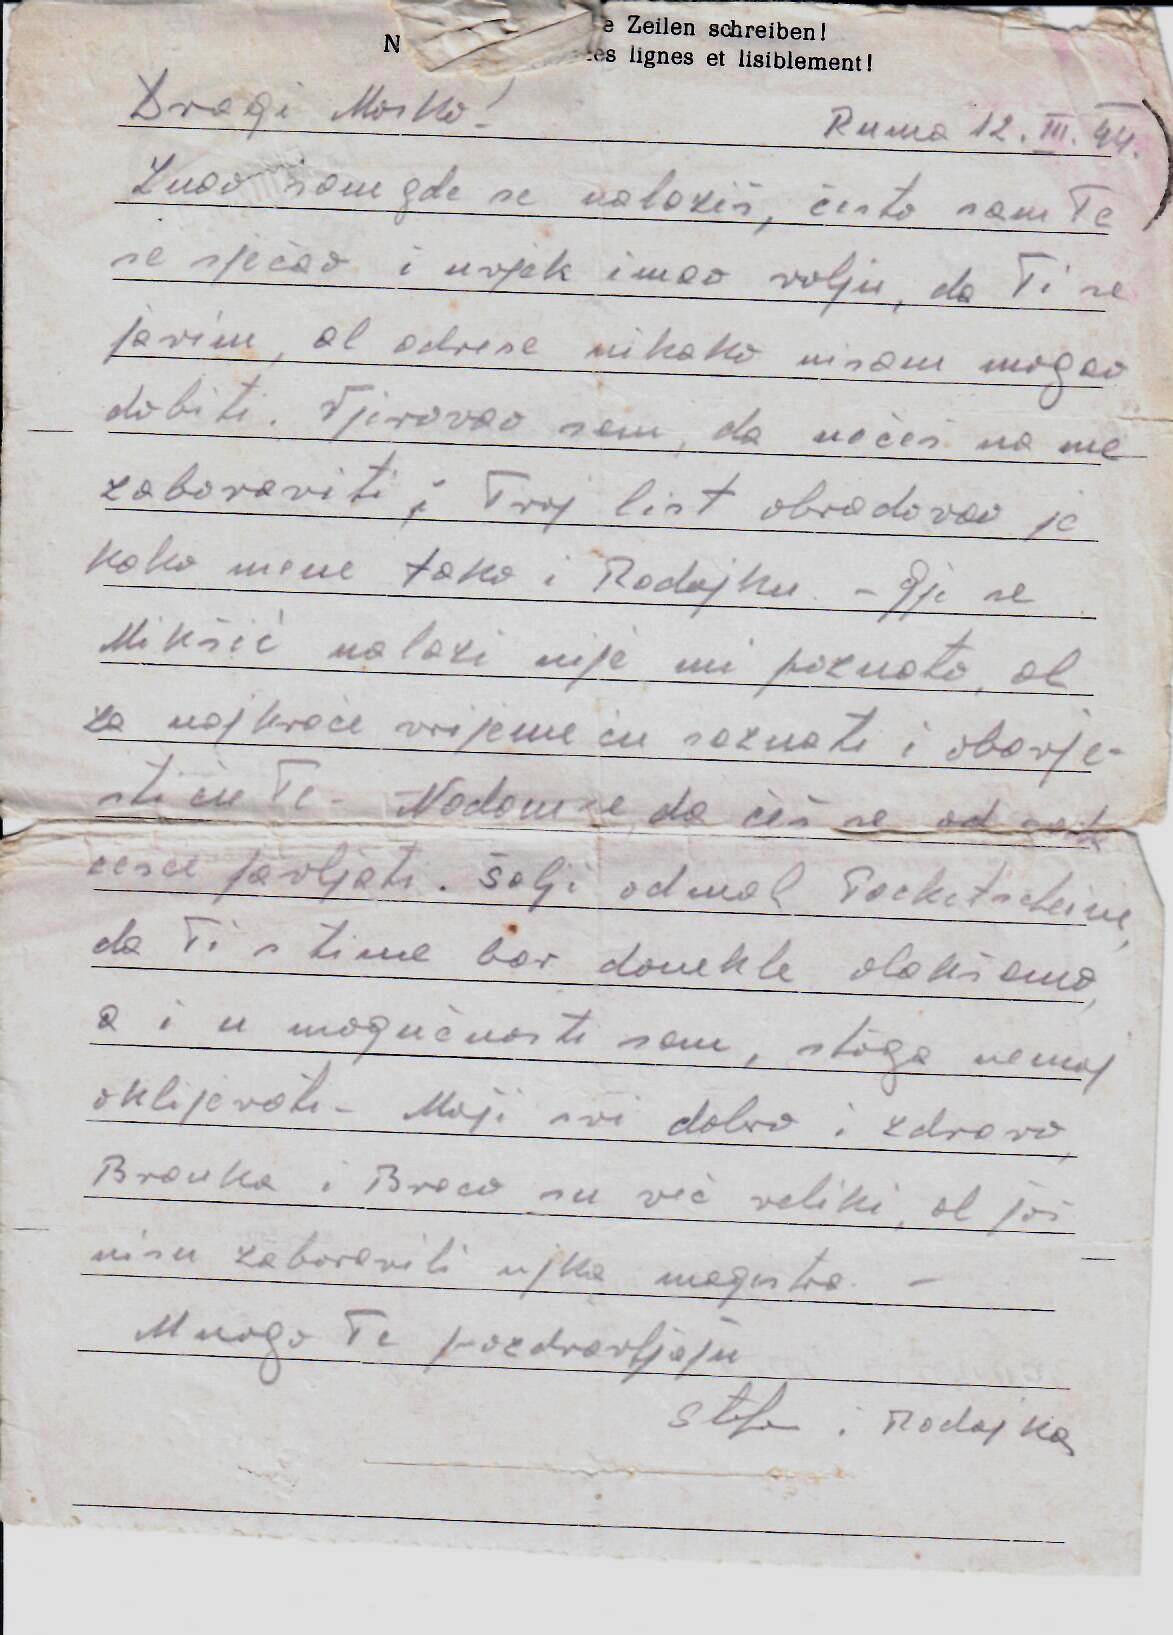 e Zeilen schreiben!
N es lignes et lisiblement!
Dragi Mosko!
Ruma 12. III. 44.
Znao sam gde se nalaziš, često sam Te
se sjećao i uvjek imao volju, da Ti se
javim, al adrese nikako nisam mogao
dobiti. Vjerovao sam, da nećeš na me
zaboraviti i Tvoj list obradovao je
kako mene tako i Radojku. - Gje se
Mikšić nalazi nije mi poznato, al
za najkraće vrijeme ću saznati i obavje-
stiću Te - Nadam se, da ćeš se od sada
česće javljati. Šalji odmah Packetscheine,
da Ti s time bar donekle olakšamo,
a i u mogućnosti sam, stoga nemoj
oklijevati - Moji svi dobro i zdravo,
Branka i Braco su već veliki, al još
nisu zaboravili ujka magistra. -
Mnogo Te pozdravljaju
i Radojka